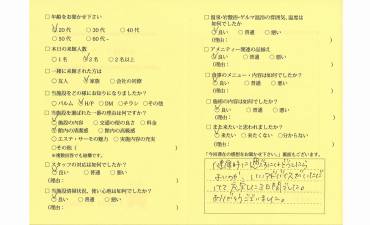 □年齢をお聞かせ下さい
20代 ○30代 ○40代
○50代 ○60代~
□本日の来館人数
○1名 2名 ○2名以上
□一緒に来館された方は
○友人 家族 ○会社の同僚
□当施設をどの様にお知りになりましたか?
○パルム H/P ○DM ○チラシ ○その他
□当施設を選ばれた一番の理由は何ですか?
施設の内容 ○交通の便の良さ ○料金
館内の清潔感 ○館内の高級感
○エステ・サービスの魅力 ○実施内容の充実
○その他( )
※複数回答でも結構です。
□スタッフの対応は如何でしたか?
良い ○普通 ○悪い
(理由: )
□当施設清掃状況、使い心地は如何でしたか?
良い ○普通 ○悪い
(理由: )
□温泉・岩盤浴・ゲルマ温浴の雰囲気、温度は
如何でしたか
良い ○普通 ○悪い
(理由: )
□アメニティー関連の品揃え
良い ○普通 ○悪い
(理由: )
□食事のメニュー・内容は如何でしたか?
良い ○普通 ○悪い
(理由: )
□施術の内容は如何でしたか?
良い ○普通 ○悪い
(理由: )
□また来たいと思われましたか?
来たい ○来たくない ○分からない
(理由: )
「今回滞在の感想をお聞かせ下さい。」裏面もございます。
ありがとうございました。